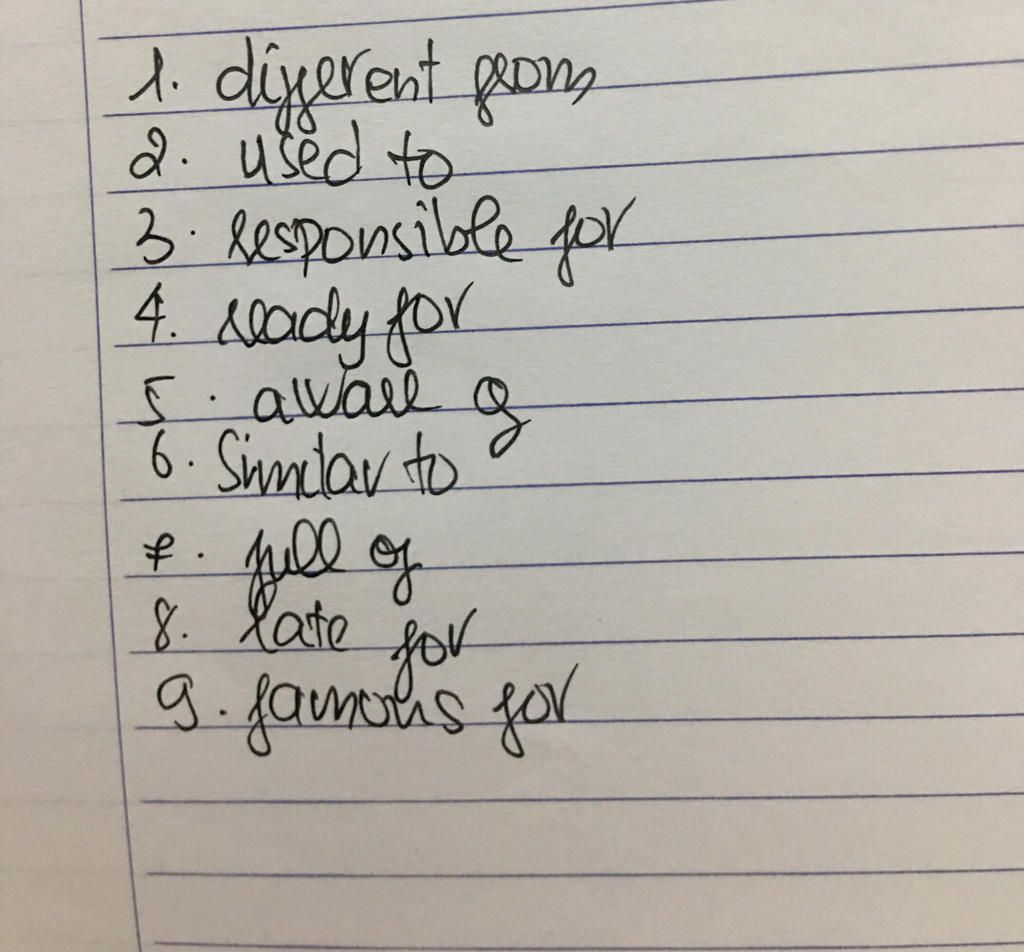 1. different from
2. used to
3. responsible for
4. ready for
5. aware of
6. Similar to
7. full of
8. late for
9. famous for